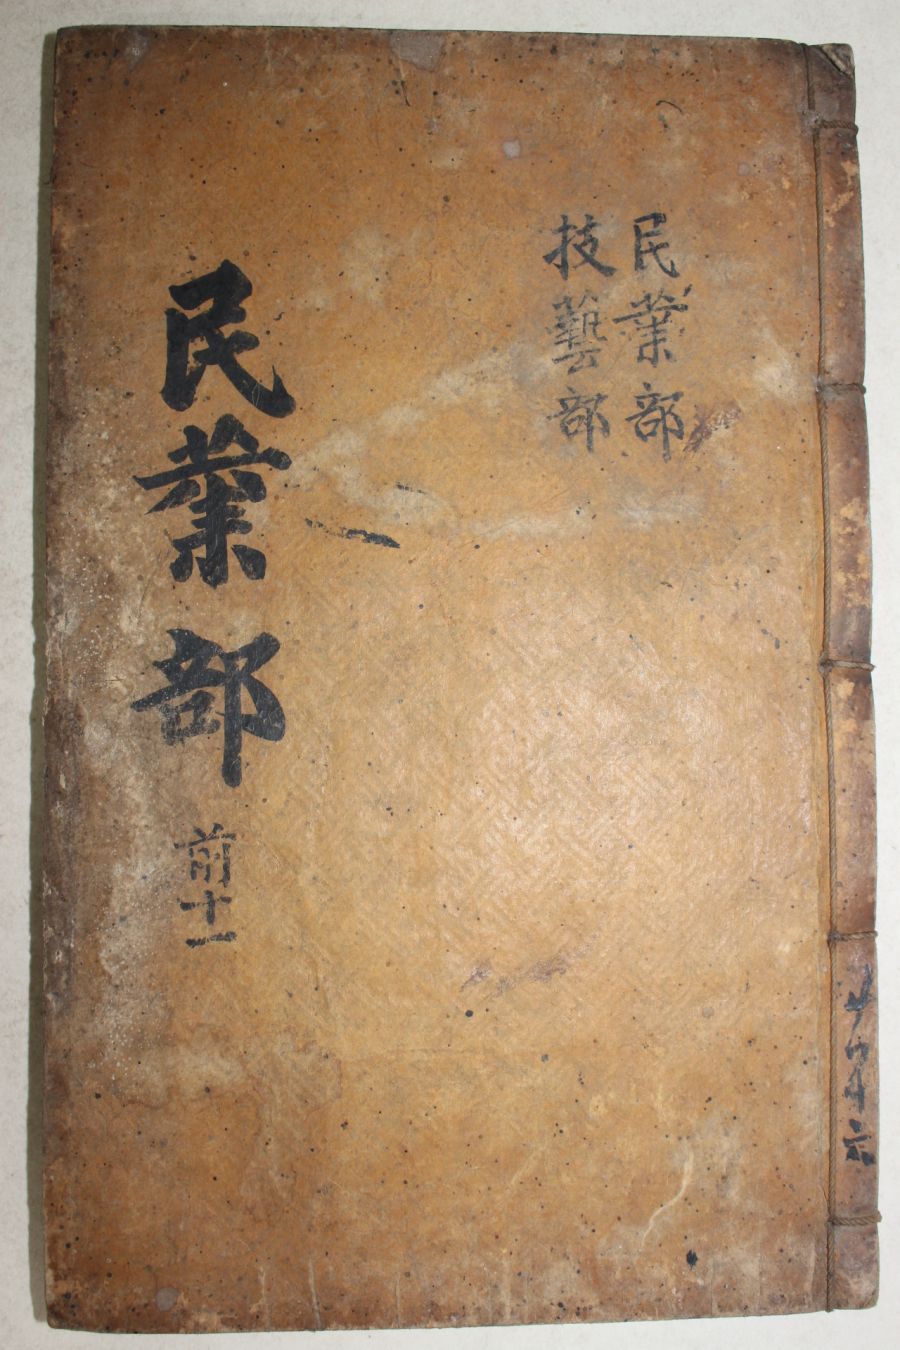 民業部
技藝部
民業部
前十一